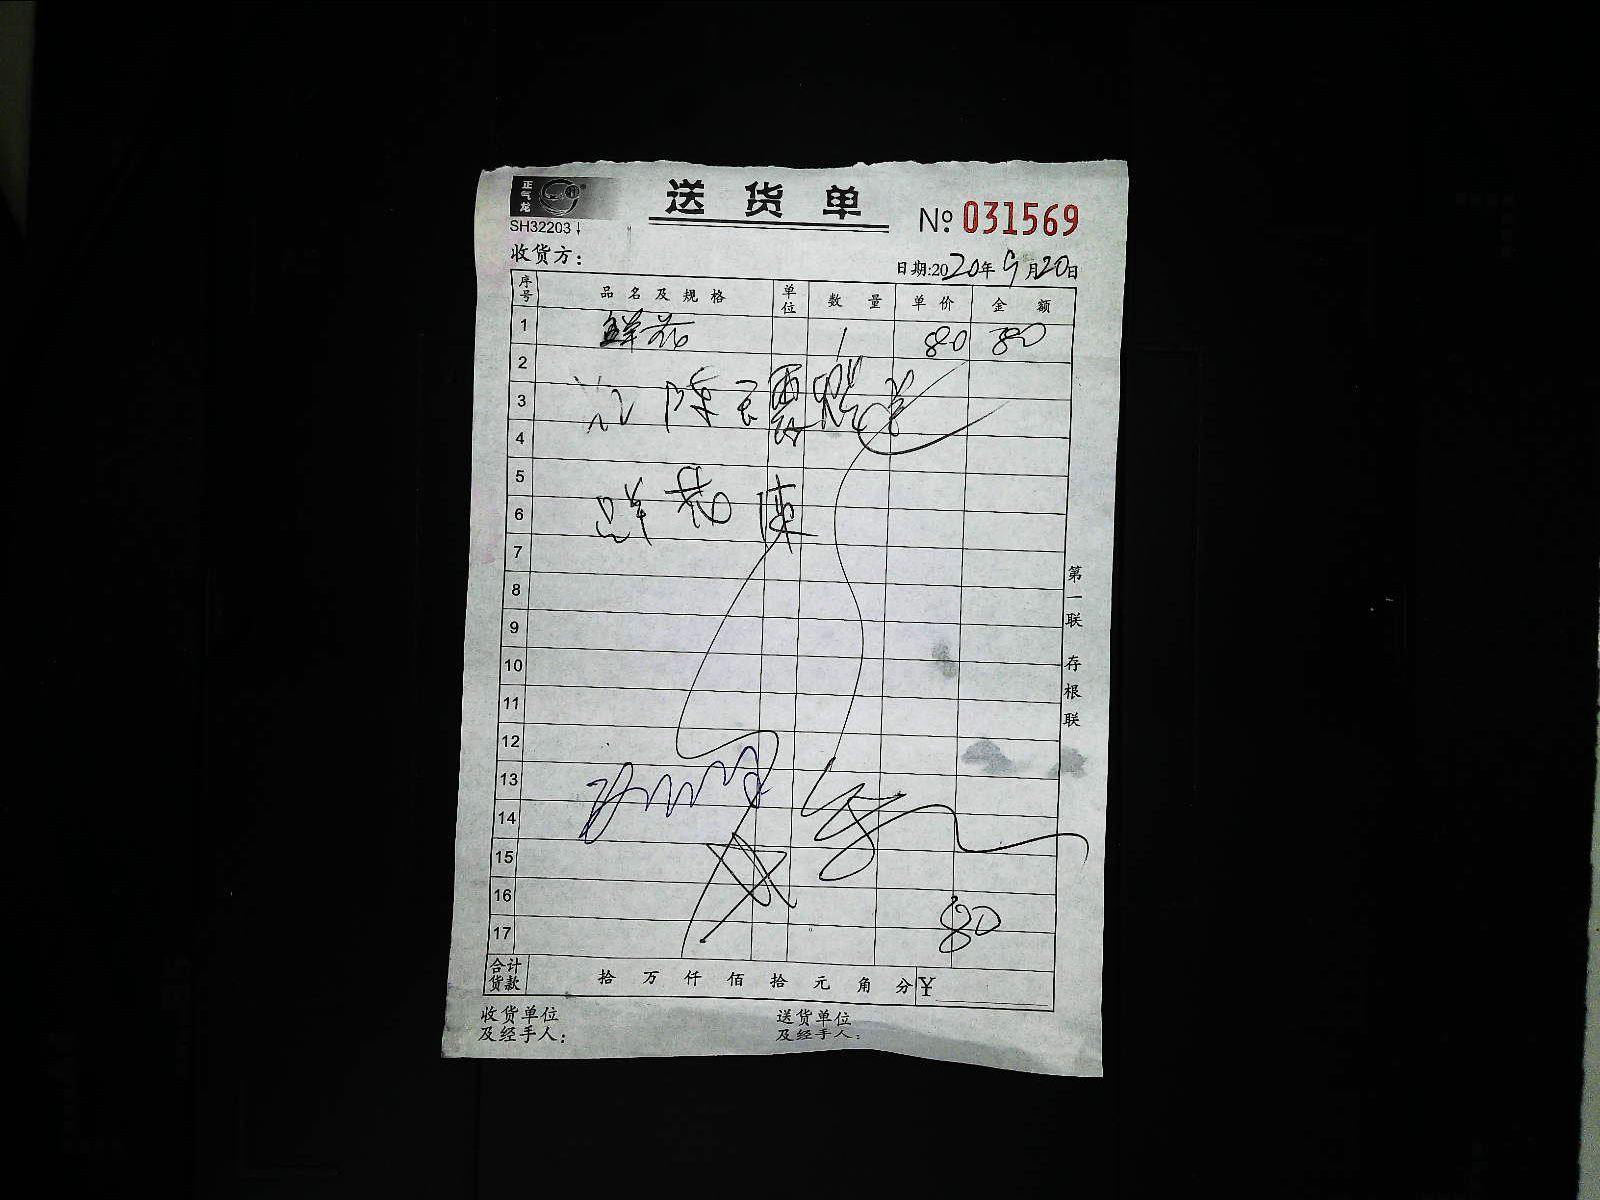 正气龙
送货单
SH32203
№ 031569
收货方：
日期:2020年9月20日
序号 品名及规格 单位 数量 单价 金额
1 鲜花 1 80 80
2
3
4
5
6 鲜花
7
8
9
10
11
12
13
14
15
16
17 80
合计货款 拾 万 仟 佰 拾 元 角 分 ¥
收货单位及经手人：
送货单位及经手人：
第一联 存根联